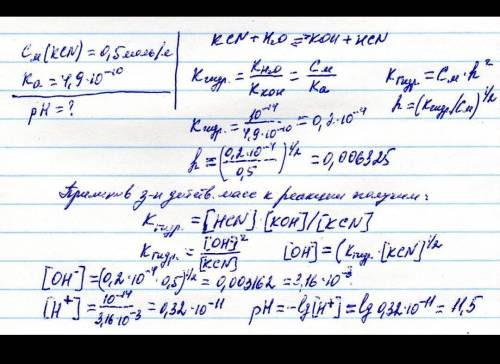 См(KCN) = 0,5 моль/л
Ka = 4,9·10⁻¹⁰
pH = ?
KCN + H₂O ⇄ KOH + HCN
Kгидр. = Kн₂о/Kкон = См/Ka
Kгидр = См·h²
h = (Kгидр/См)^1/2
Kгидр. = 10⁻¹⁴/4,9·10⁻¹⁰ = 0,2·10⁻⁴
h = (0,2·10⁻⁴/0,5)^1/2 = 0,006325
Применив з-н действ. масс к реакции получим:
Kгидр. = [HCN]·[KOH]/[KCN]
Kгидр. = [OH⁻]²/[KCN] [OH] = (Kгидр.·[KCN])^1/2
[OH⁻] = (0,2·10⁻⁴·0,5)^1/2 = 0,003162 = 3,16·10⁻³
[H⁺] = 10⁻¹⁴/3,16·10⁻³ = 0,32·10⁻¹¹ pH = -lg[H⁺] = lg 0,32·10⁻¹¹ = 11,5